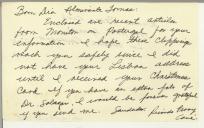 Bom Dia Almirante Tomas:
Enclosed are recent articles
from Boston on Portugal for your
information. I hope these clippings
reach you safely since I did
not have your Lisbon address
until I received your Christmas
Card. If you have an extra pate of
Dr. Salazar I would be forever grateful
if you send me. Saudades